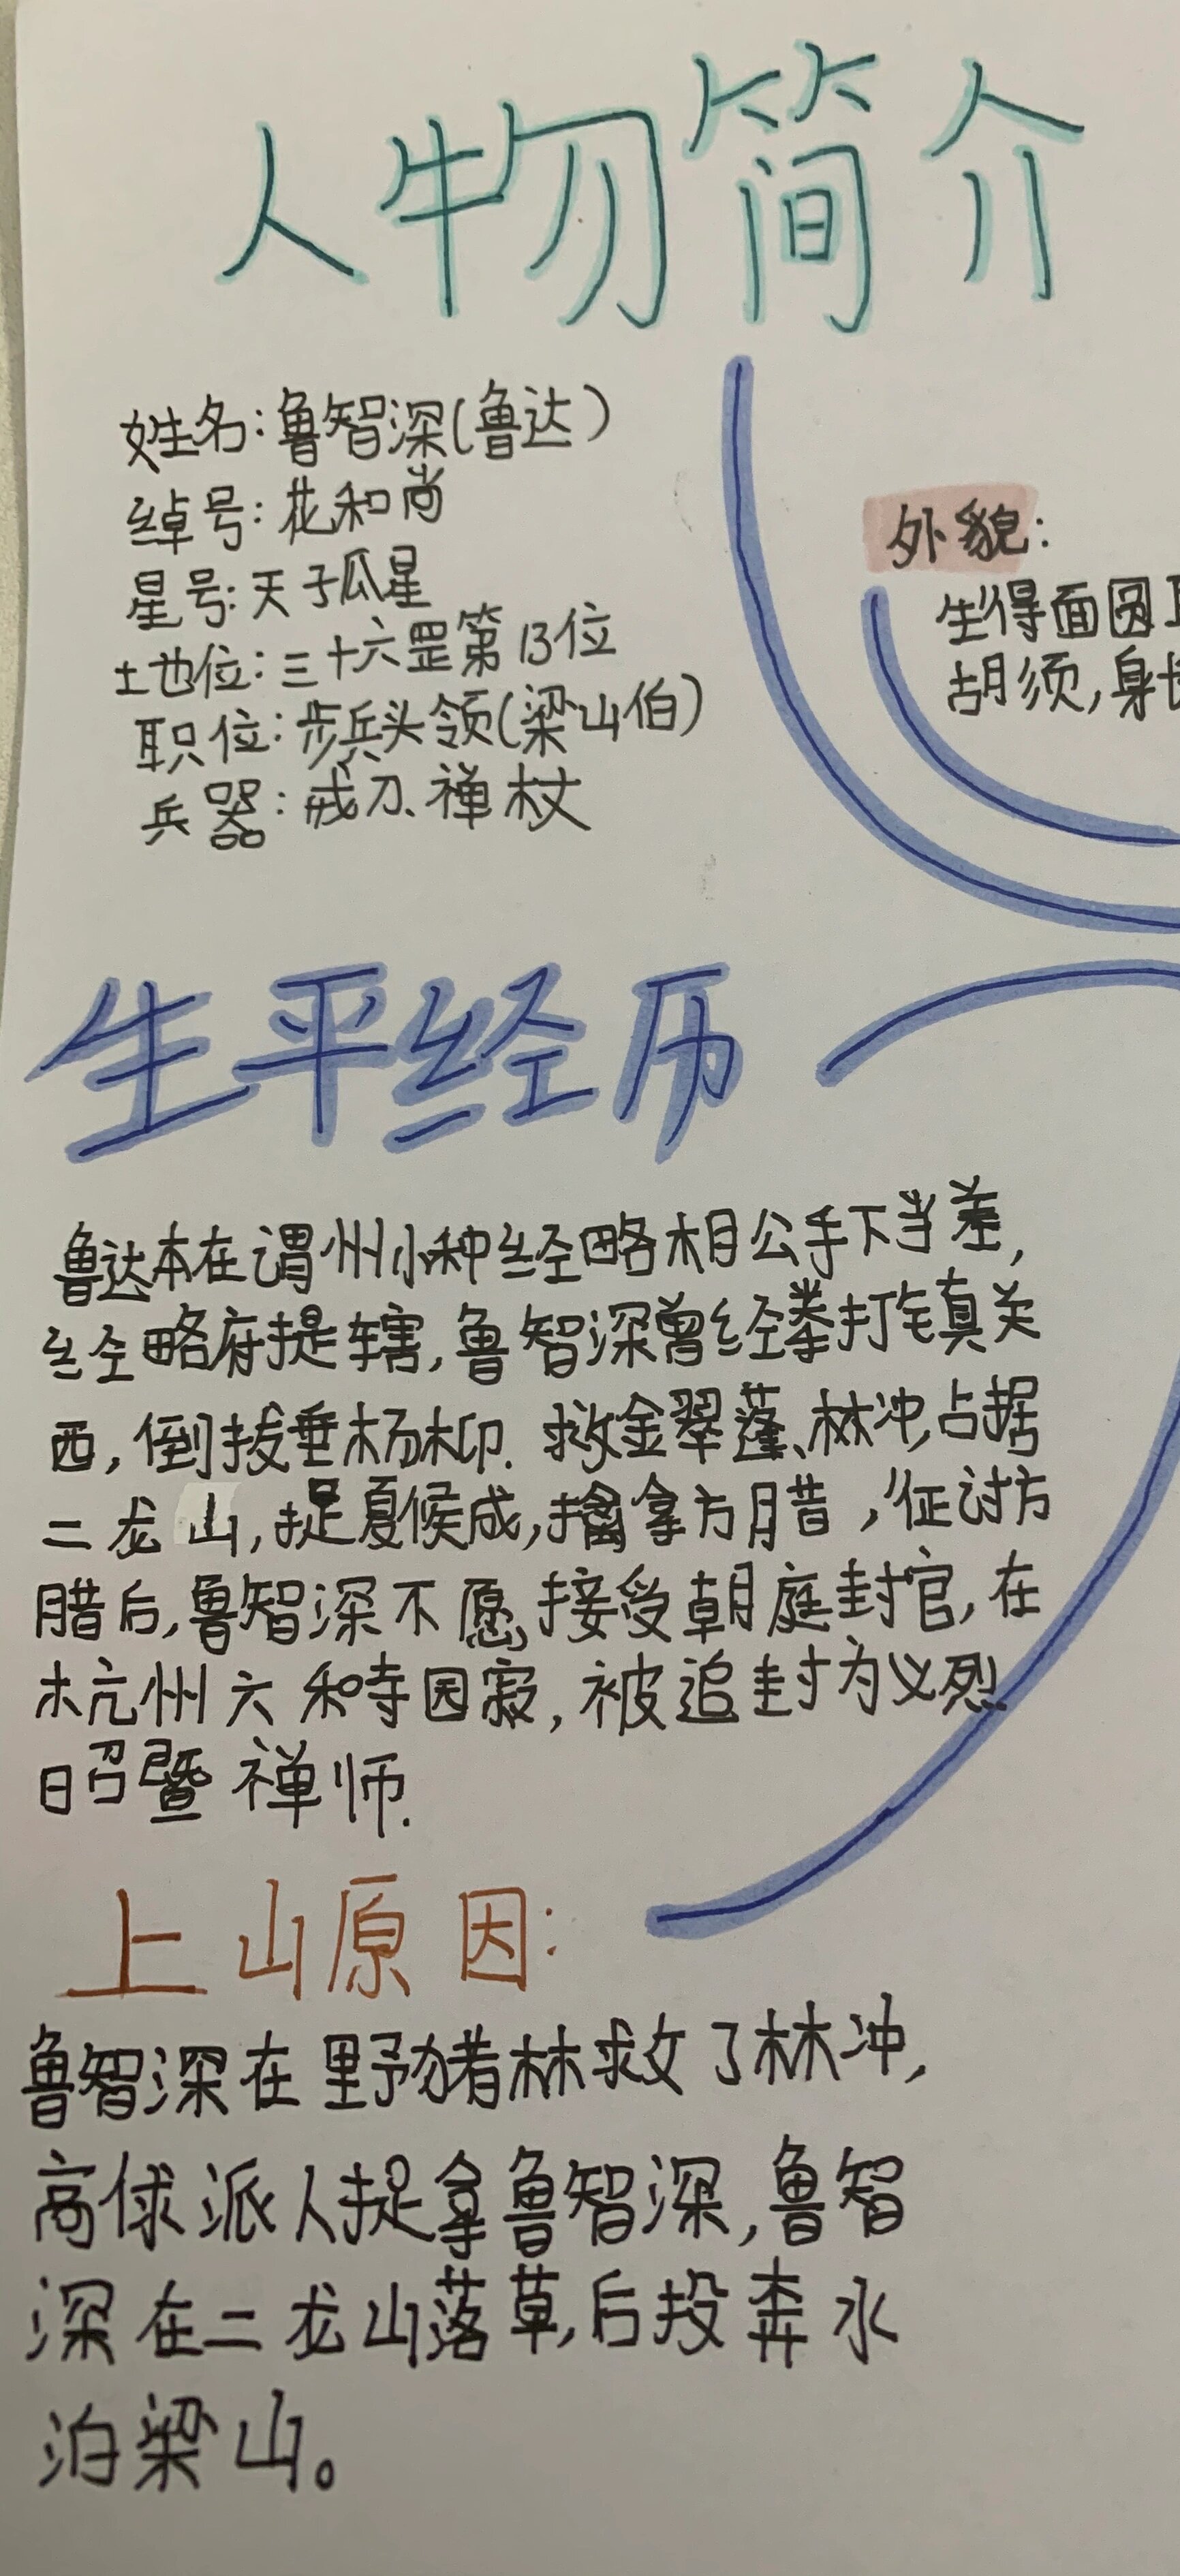 人物简介
姓名:鲁智深(鲁达)
绰号:花和尚
星号:天孤星
地位:三十六罡第13位
职位:步兵头领(梁山伯)
兵器:戒刀、禅杖
外貌:
生得面圆
胡须,身长
生平经历
鲁达本在谓州小种经略相公手下当差,
经略府提辖,鲁智深曾经拳打镇关
西,倒拔垂杨柳.救金翠莲、林冲,占据
二龙山,捉夏候成,擒拿方腊,征讨方
腊后,鲁智深不愿接受朝庭封官,在
杭州六和寺园寂,被追封为义烈
昭暨禅师.
上山原因:
鲁智深在野猪林救了林冲,
高俅派人捉拿鲁智深,鲁智
深在二龙山落草,后投奔水
泊梁山。